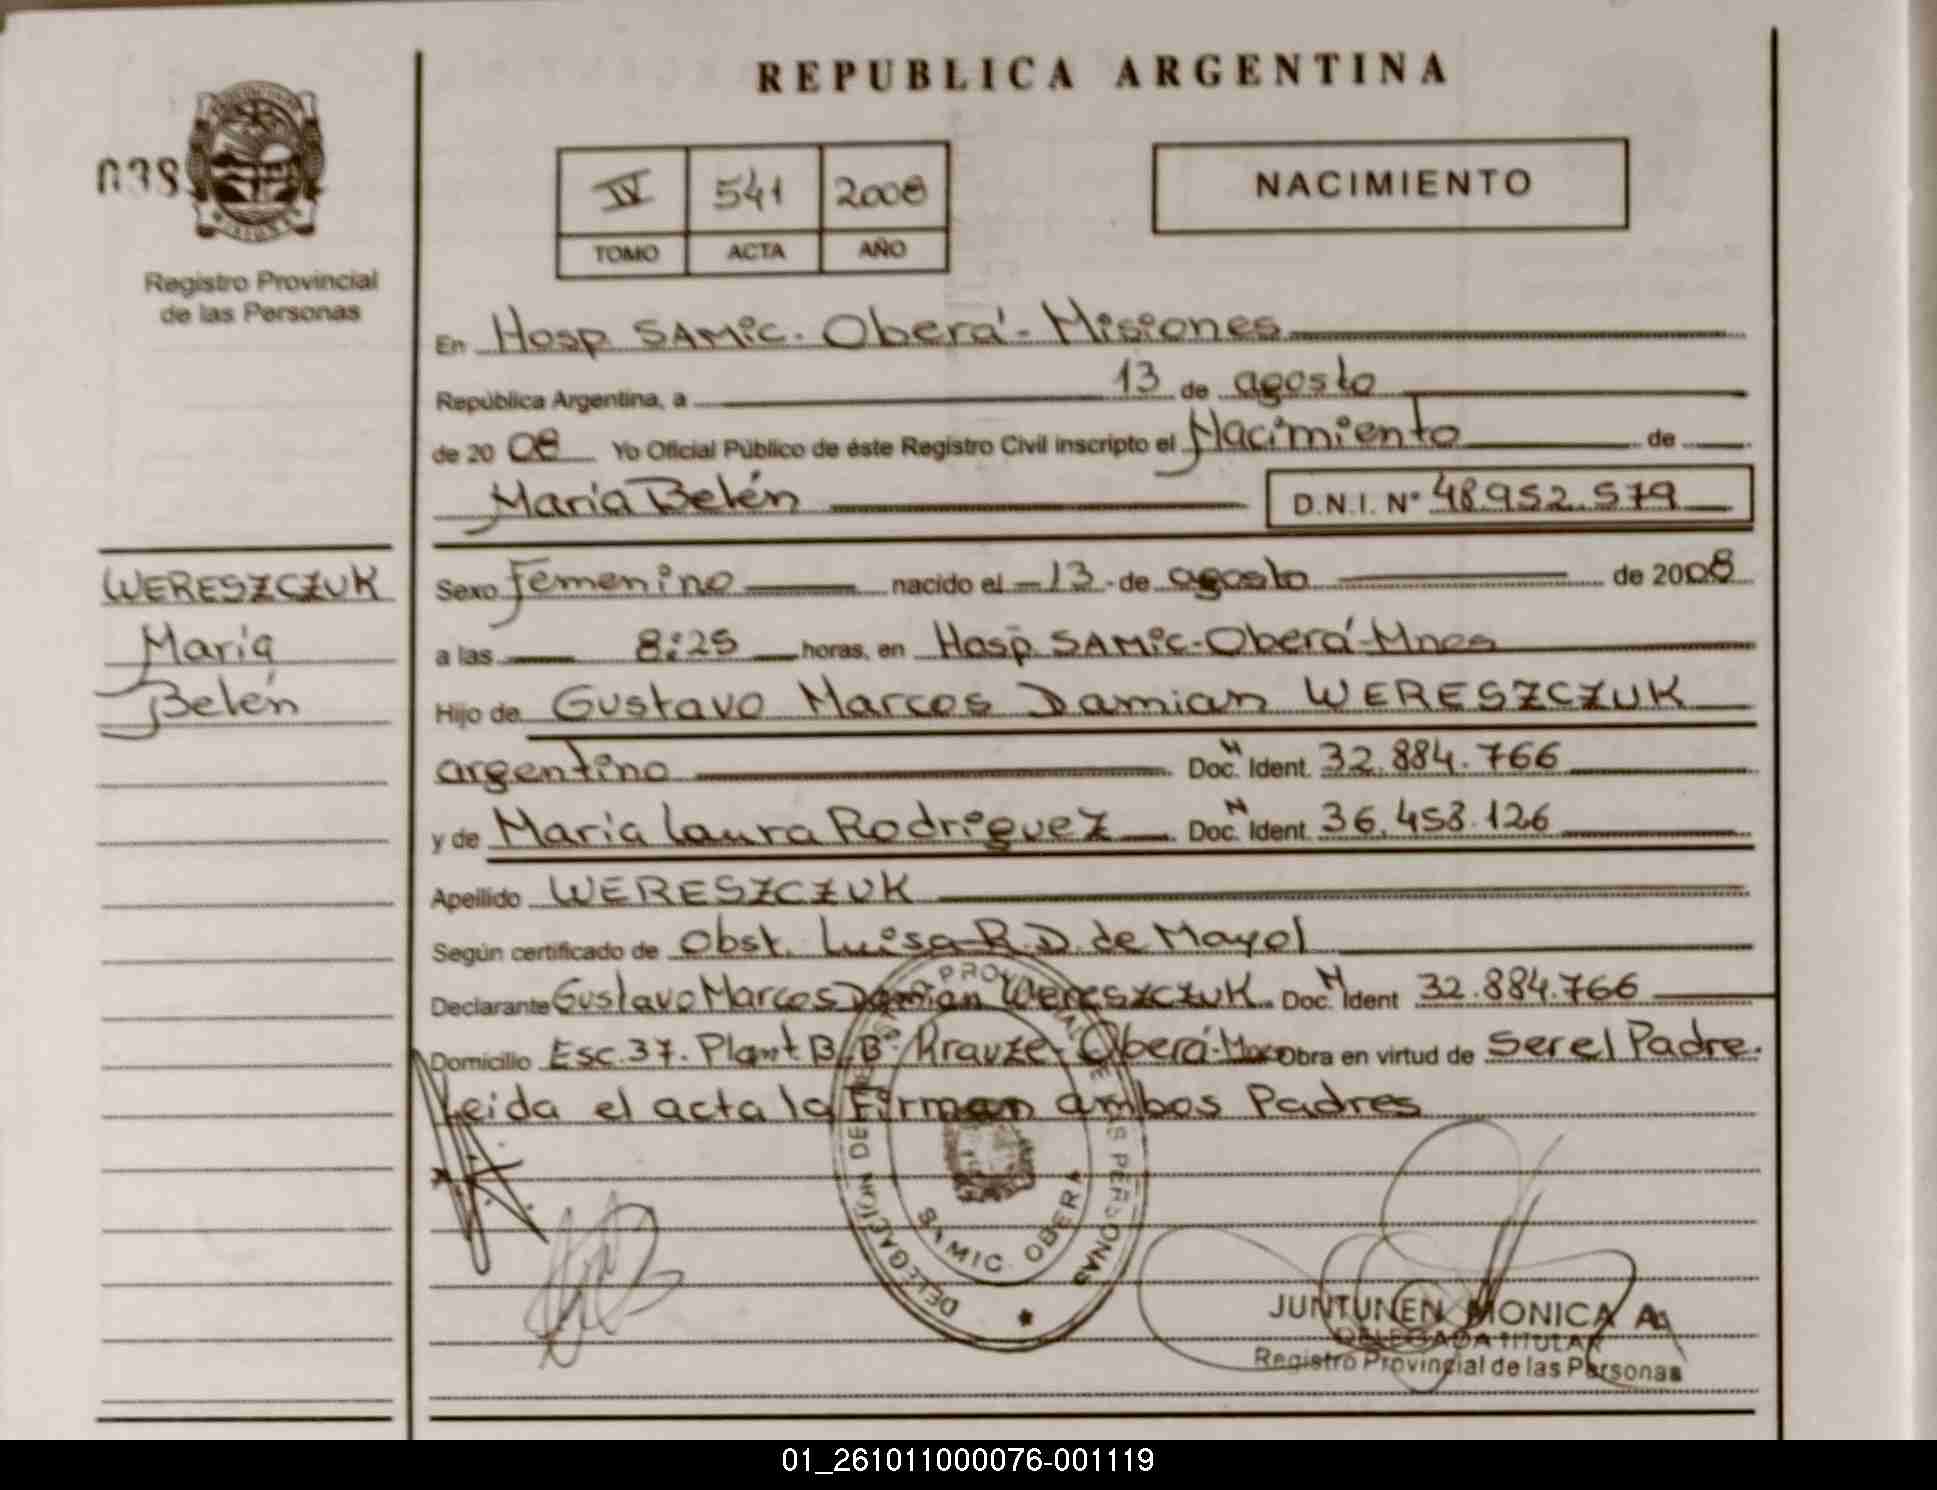 REPUBLICA ARGENTINA
038
IV 541 2008
TOMO ACTA AÑO
NACIMIENTO
Registro Provincial
de las Personas
En Hosp SAMic. Oberá - Misiones
República Argentina, a 13 de agosto
de 20 08 Yo Oficial Público de éste Registro Civil inscripto el Nacimiento de
María Belén D.N.I. Nº 48.952.579
WERESZCZUK
María
Belén
Sexo Femenino nacido el 13 de agosto de 2008
a las 8:25 horas, en Hosp. SAMic - Oberá - Mnes
Hijo de Gustavo Marcos Damian WERESZCZUK
argentino Doc. N Ident. 32.884.766
y de María Laura Rodriguez Doc. N Ident. 36.458.126
Apellido WERESZCZUK
Según certificado de Obst. Luisa R.D. de Mayol
Declarante Gustavo Marcos Damian Wereszczuk Doc. N Ident 32.884.766
Domicilio Esc. 37. Plant B. Bº Krauze - Oberá - Obra en virtud de Ser el Padre.
Leida el acta la Firman ambos Padres
DELEGACIÓN DE REGISTRO PROVINCIAL DE LAS PERSONAS
SAMIC OBERA
JUNTUNEN MONICA A.
DELEGADA TITULAR
Registro Provincial de las Personas
01_261011000076-001119